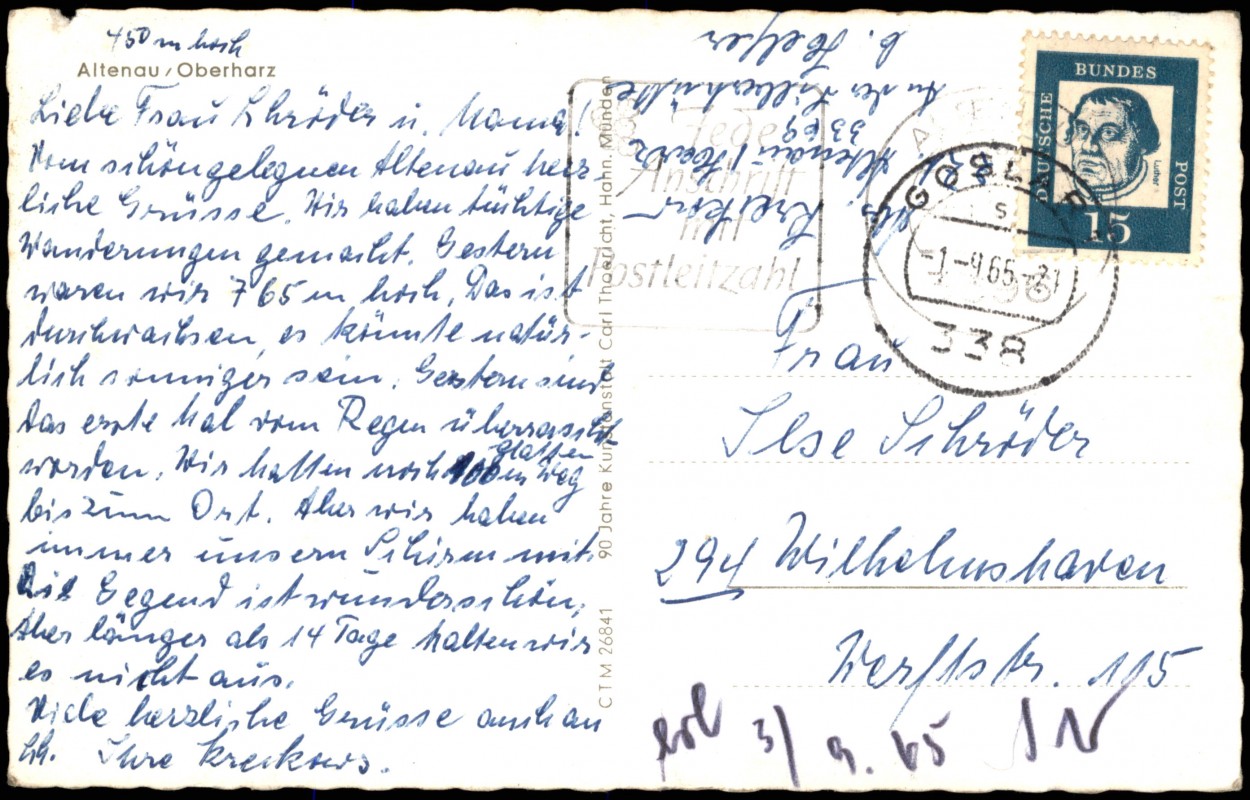 450 m hoch
Altenau / Oberharz
Liebe Frau Schröder u. Mama!
Vom schöngelegnen Altenau herz-
liche Grüsse. Wir haben tüchtige
Wanderungen gemacht. Gestern
waren wir 765 m hoch. Das ist
durchwachsen, es könnte natür-
lich sonniger sein. Gestern sind
das erste Mal vom Regen überrascht
worden. Wir hatten noch 100 m Weg
glatten
bis zum Ort. Aber wir haben
immer unsern Schirm mit.
Die Gegend ist wunderschön,
Aber länger als 14 Tage halten wir
es nicht aus.
Viele herzliche Grüsse auch an
Ihre Kreckows.
CTM 26841 90 Jahre Kunstanstalt Carl Thoericht, Hahn. Münden
Abs. Kreckow
Altenau / Harz
3369
An der Silberhütte
b. Helfer
Jede
Anschrift
mit
Postleitzahl
GOSLAR
-1.-9.65.-21
338
DEUSCHE
BUNDES
POST
Luther
15
Frau
Ilse Schröder
294 Wilhelmshaven
Werftstr. 115
erl 3/9.65